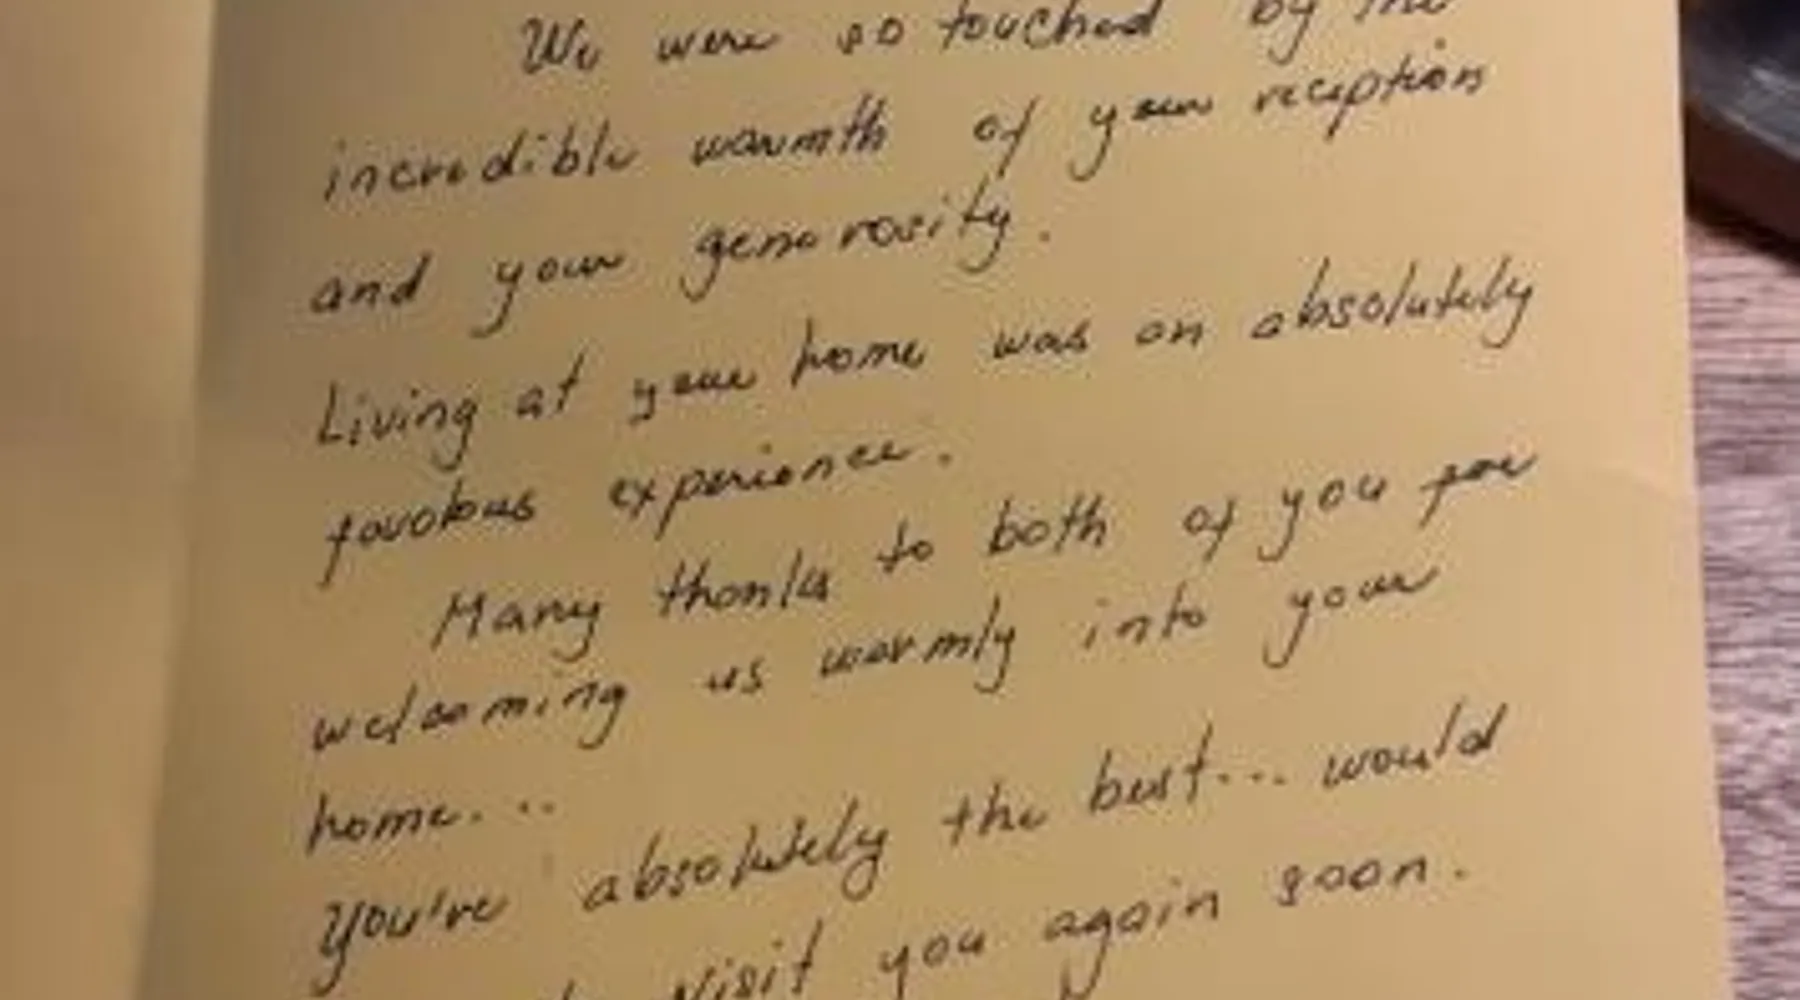 We were so touched by the
incredible warmth of your reception
and your generosity.
Living at your home was an absolutely
favolous experience.
Many thanks to both of you for
welcoming us warmly into your
home...
You're absolutely the best... would
visit you again soon.